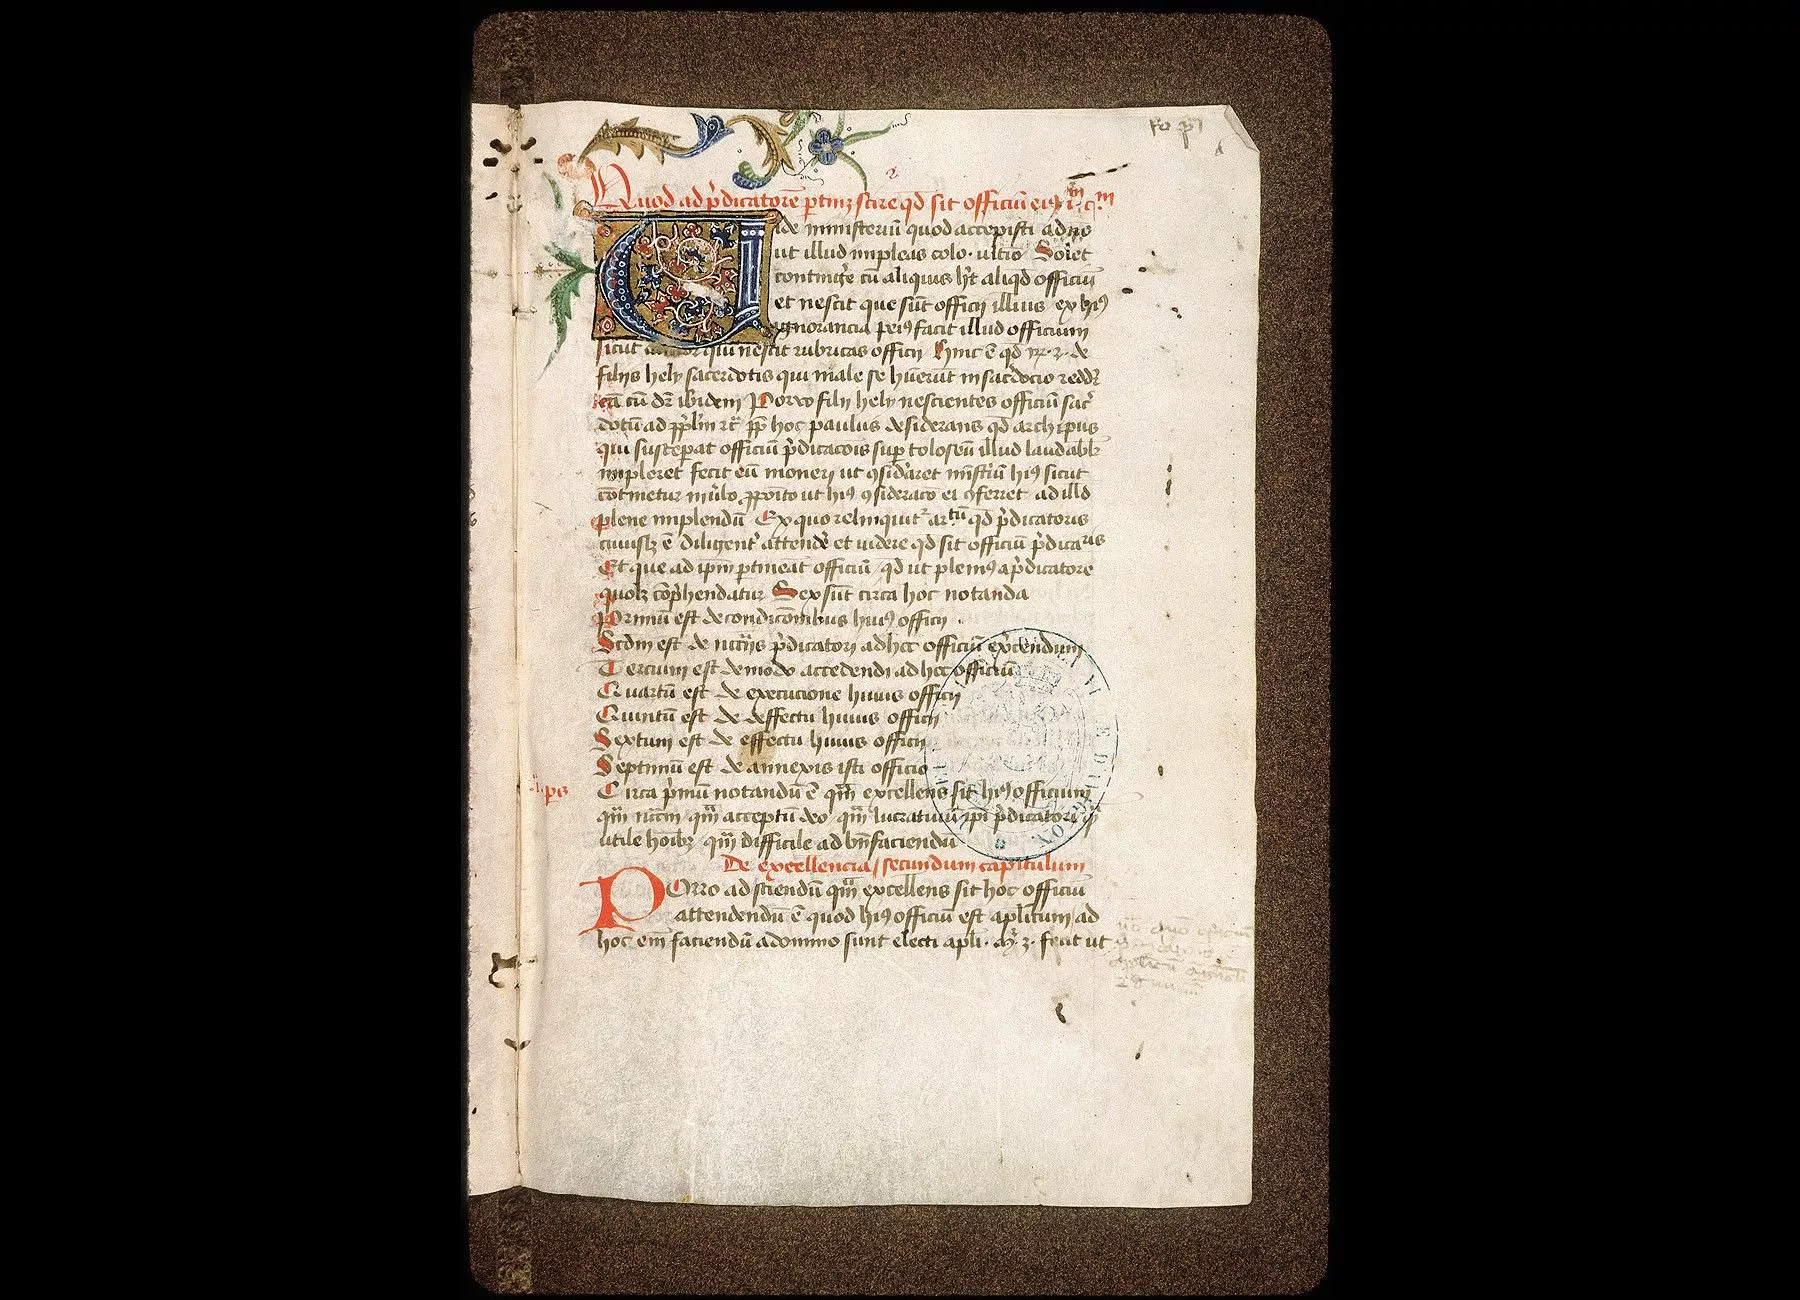 Quod ad p̄dicatorē ptinȝ scire qd sit officiū eiꝰ
ide ministeriū quod accepisti a dño
ut illud impleas colo· ultīo Solet
conting̃e cū aliquis hȝt aliqd officiū
et nescit que sūt officij illius ex hꝰ
ignorancia peiꝰ facit illud officium
sicut qui nescit rubricas officij Hinc ē qd de
filijs hely sacerdotis qui male se hūerūt in sac̄docio reddr̄
cū dr̄ ibidem Porro filij hely nescientes officiū sac̄
dotū ad pp̄lm rc̄ pp̄ hoc paulus desiderans qd archipus
qui susceperat officiū p̄dicacōis sup̄ colosen̄ illud laudabłr
impleret fecit eū moneri ut ꝯsid̄aret mīst̄iū hꝰ sicut
cōtinetur ꝓpōito ut hꝰ ꝯsideraco ei ꝯferret ad illd
plene implendū Ex quo relinquitr qd p̄dicatoris
cuiuslȝ ē diligent̄ attend̄e et uidere qd sit officiū p̄dicaris
Et que ad ip̄m ptineat officiū qd ut pleniꝰ a p̄dicatore
quolȝ cōp̄hendatur Sex sūt circa hoc notanda
Primū est de condicōnibus huiꝰ officij
Scdm est de nccīis p̄dicatori ad hoc officiū ex̄cendum
Tercium est de modo accedendi ad hoc officiū
Quartū est de execucione huius officij
Quintū est de deffectu huius officij
Sextum est de effectu huius officij
Septimū est de annexis isti officio
Circa p̄mū notandū ē qm̄ excellens sit hꝰ officium
qm̄ nccm̄ qm̄ acceptū deo qm̄ lucratiuū ip̄i p̄dicatori qm̄
utile hoībȝ qm̄ difficile ad bn̄ faciendū
De excellencia / secundum capitulum
Porro ad sciendū qm̄ excellens sit hoc officiū
attendendū ē quod hꝰ officiū est aplīcum ad
hoc em̄ faciendū a domino sunt electi apli· mr̄· 3· fecit ut